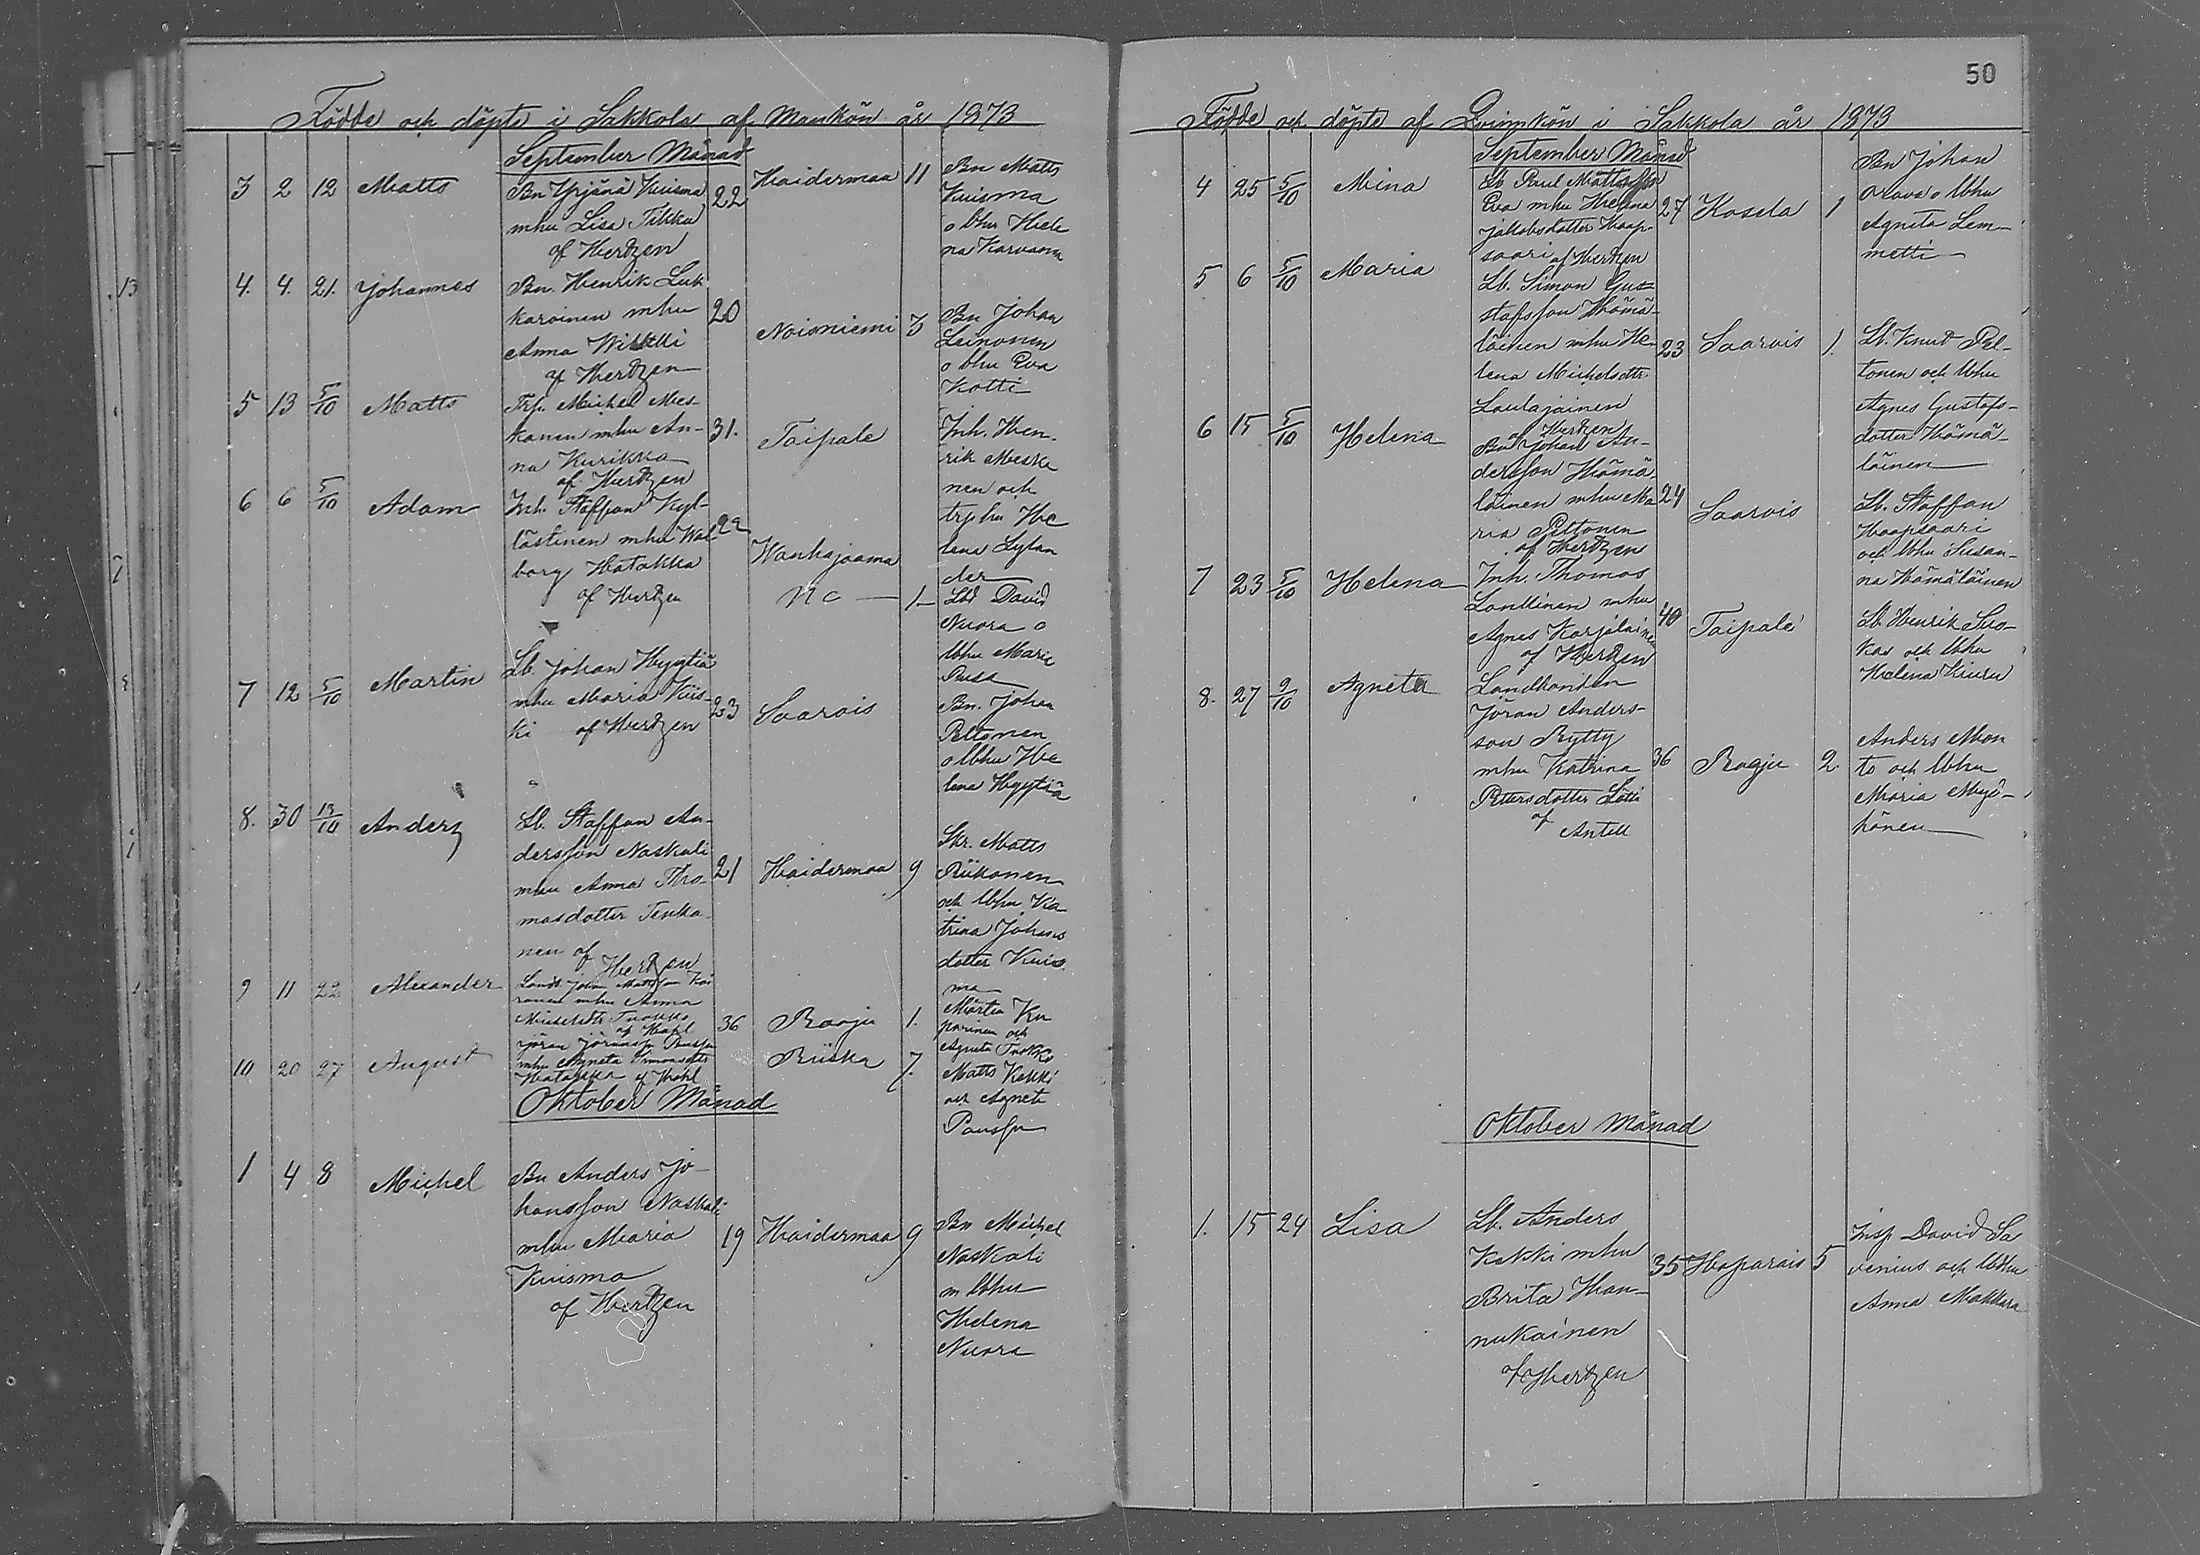 Födde och döpte i Sakkola af Mankön år 1873
September Månad
3 2 12 Matts
Bn Yrjänä Kuisma
mhu Lisa Tikka
af Hertzen
22 Haidermaa 11
Bn Matts
Kuisma
o bhu Hele
na Karvanen
4. 4. 21. Johannes
Bn. Henrik Luk
karoinen mhu
Anna
af Hertzen
20 Noisniemi 3
Bn Johan
Leinonen
o bhu Eva
Kotti
5 13 5/10 Matts
Trp. Michel Mes-
kanen mhu An-
na Kurikka
af Hertzen
31. Taipale
Inh. Hen-
rik Meska
nen och
trp hu He
lena Sylan
der
6 6 5/10 Adam
Inh. Staffan Kyl-
lästinen mhu Wal
borg Hatakka
af Hertzen
22 Wanhajaama
No 1
Lbd David
Nuora o
lbhu Maria
Pusa
7 12 5/10 Martin
Lb. Johan Hyytiä
mhu Maria Kiis-
ki af Hertzen
23 Saarois
Bn. Johan
Peltonen
o lbhu He
lena Hyytiä
8. 30 13/10 Anders
Lb. Staffan An-
dersson Naskali
mhu Anna Tho-
masdotter Tenka-
nen af
Hertzen
21 Haidermaa 9
Skr. Matts
Riikonen
och lbhu Ka
trina Johans
dotter Kuis
ma
9 11 22 Alexander
mhu Anna
Michelsdtr Tuokko
af Hahl
36 Raaju 1.
Mårten Ku
parinen och
Agneta Tuokko
10 20 27 August
mhu Agneta Simonsdtr
Hatakka af Hahl
Riiska 7.
Matts Kekki
och Agneta
Paussu
Oktober Månad
1 4 8 Michel
Bn Anders Jo-
hansson Naskali
mhu Maria
Kuisma
af Hertzen
19 Haidermaa 9
Bn Michel
Naskali
m lbhu
Helena
Nuora
50
Födde och döpte af Qvinnkön i Sakkola år 1873
September Månad
4 25 5/10 Mina
Lb. Paul Mattsson
Eva mhu Helena
Jakobsdotter Haap-
saari af Hertzen
27 Kosela 1
Bn Johan
Orava o lbhu
Agneta Lem-
metti
5 6 5/10 Maria
Lb. Simon Gus-
tafsson Hämä-
läinen mhu He-
lena Michelsdtr
Laulajainen
af Hertzen
23 Saarois 1.
Lb. Knut Pel-
tonen och lbhu
Agnes Gustafs-
dotter Hämä-
läinen
6 15 5/10 Helena
Bn Johan An-
dersson Hämä-
läinen mhu Ma
ria Peltonen
af Hertzen
24 Saarois
Lb. Staffan
Haapsaari
och lbhu Susan-
na Hämäläinen
7 23 5/10 Helena
Inh. Thomas
Lonkinen mhu
Agnes Karjalainen
af Hertzen
40 Taipale
Lb. Henrik Suo-
kas och lbhu
Helena Kiuru
8. 27 9/10 Agneta
Landbonden
Jöran Anders-
son Rytty
mhu Katrina
Pettersdotter Lätti
af
Antell
36 Raaju 2
Anders Mon
to och lbhu
Maria Myö-
hänen
Oktober Månad
1. 15 24 Lisa
Lb. Anders
Kekki mhu
Brita Han-
nukainen
af Hertzen
35 Haparais 5
Insp David Sa
venius och lbhu
Anna Makkara